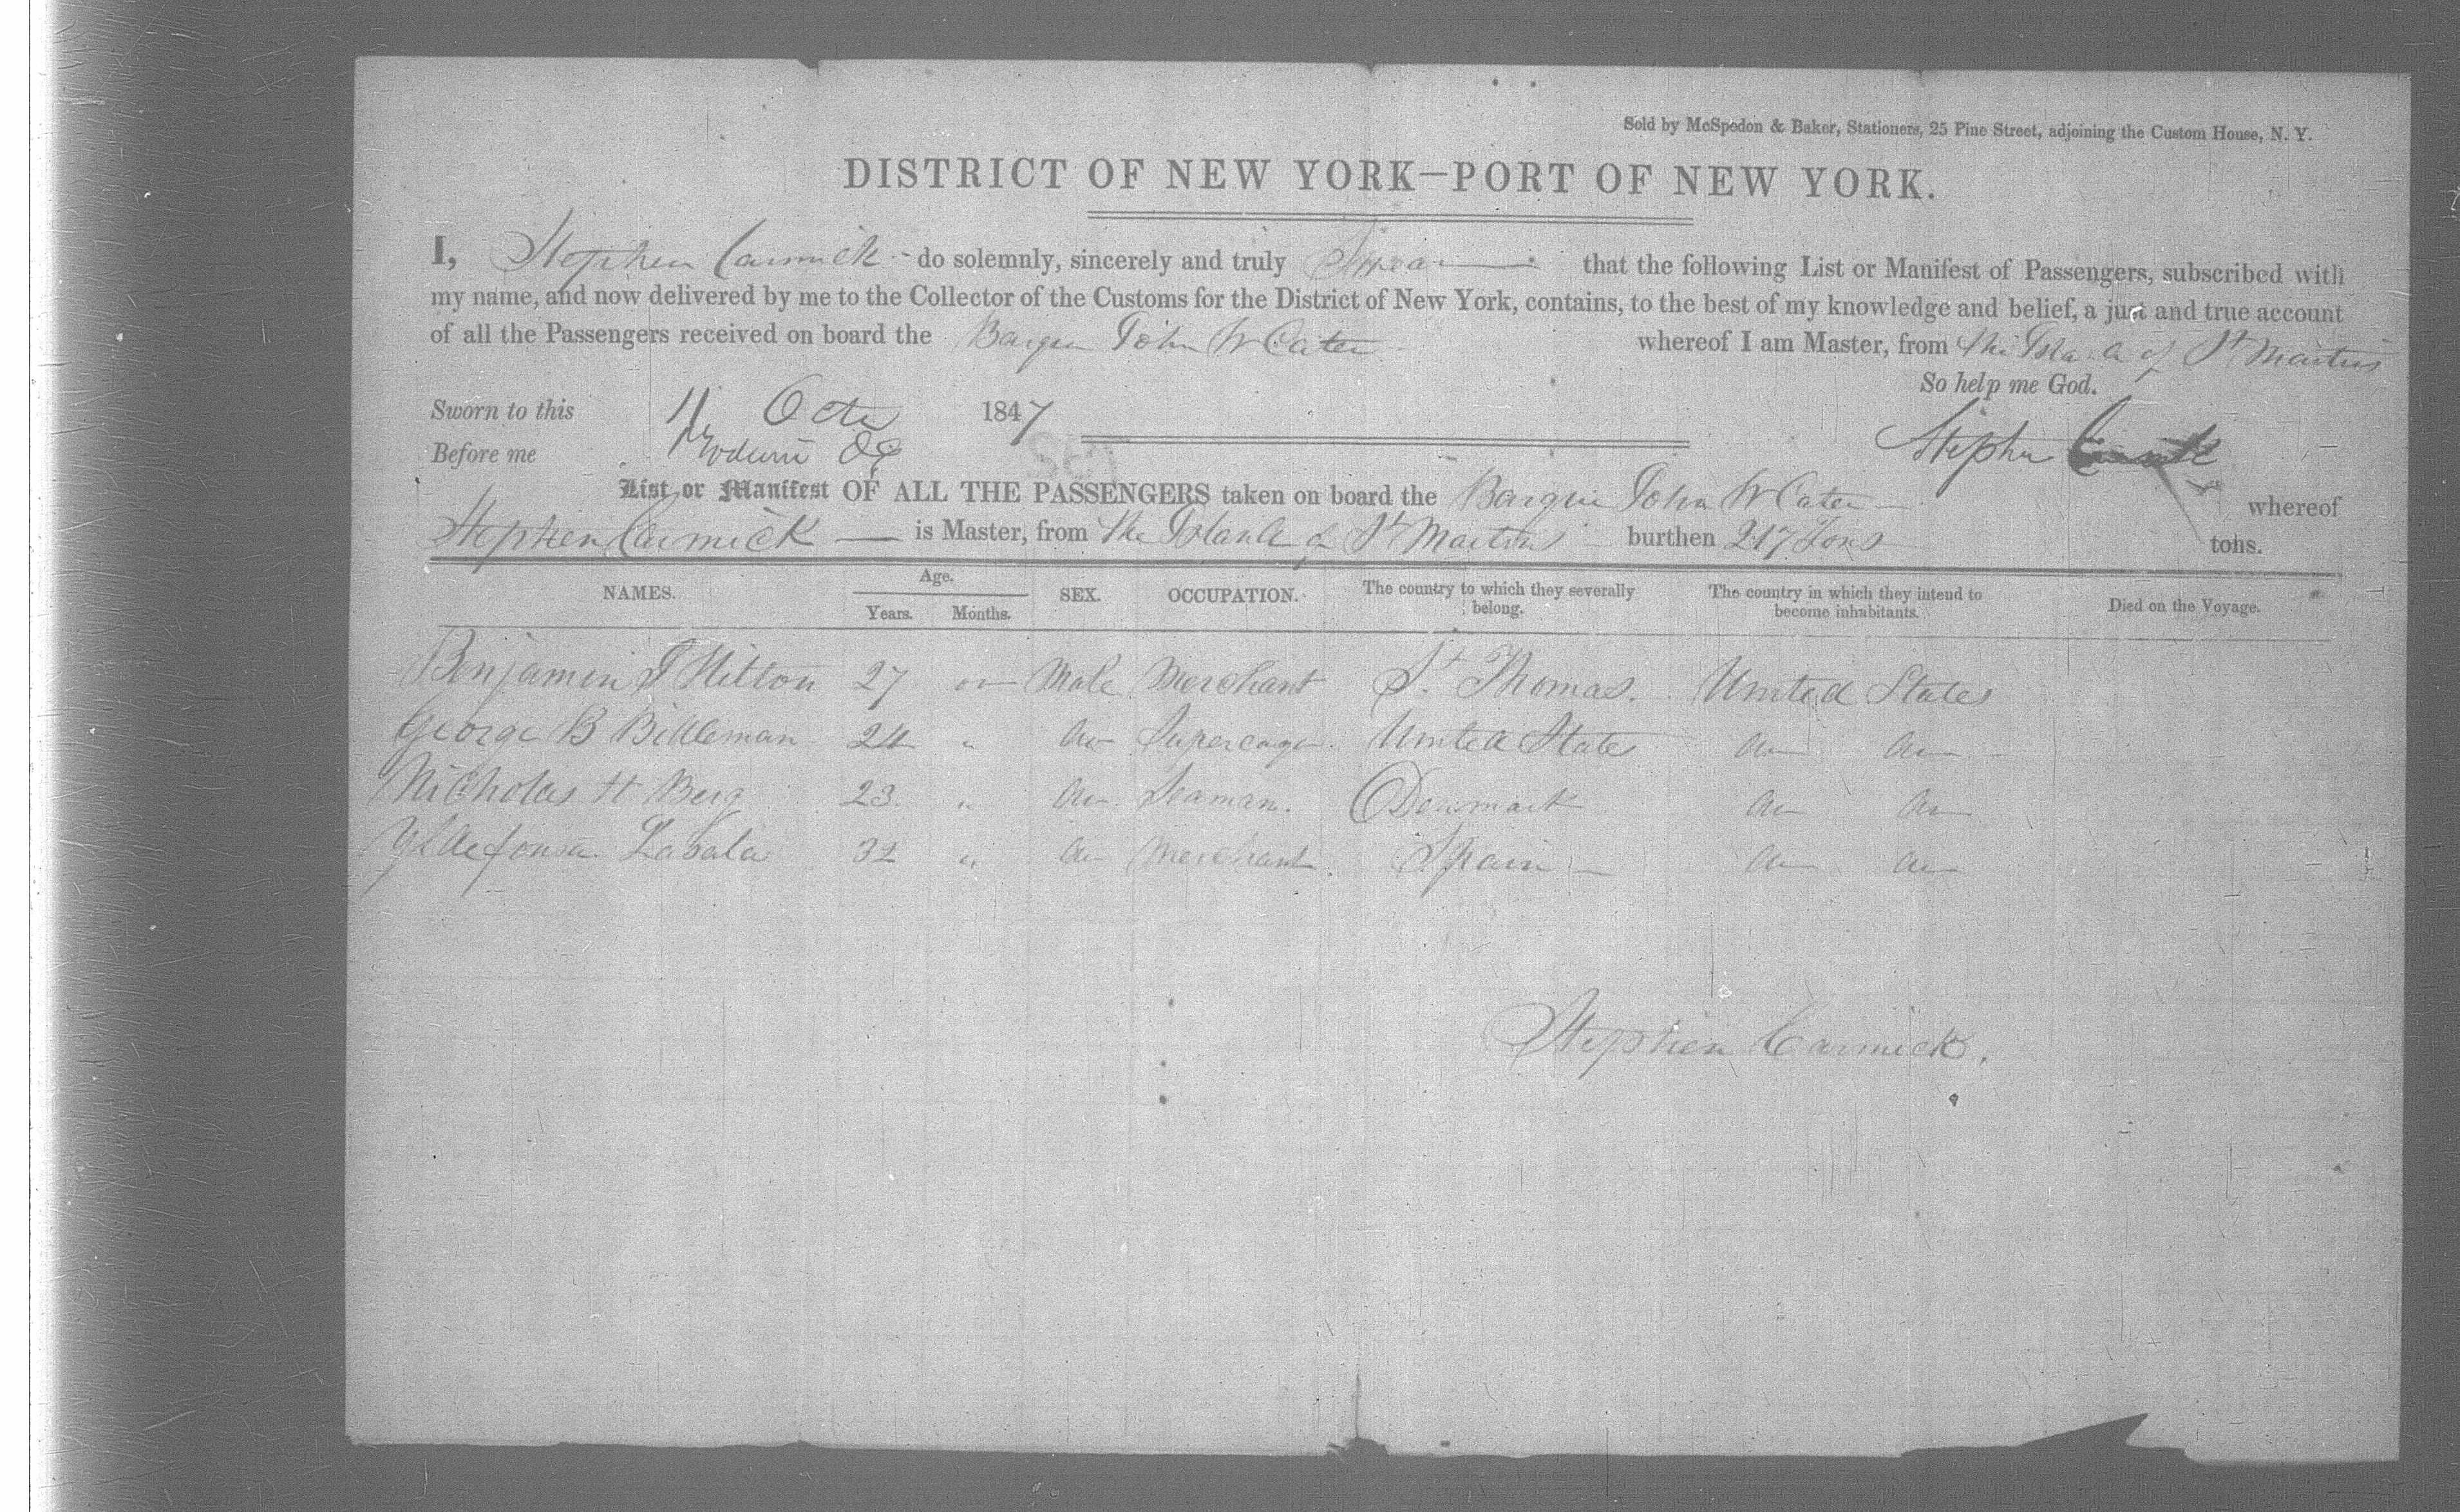 Sold by McSpedon & Baker, Stationers, 25 Pine Street, adjoining the Custom House, N. Y.
DISTRICT OF NEW YORK—PORT OF NEW YORK.
I, Stephen Carmick do solemnly, sincerely and truly Swear that the following List or Manifest of Passengers, subscribed with
my name, and now delivered by me to the Collector of the Customs for the District of New York, contains, to the best of my knowledge and belief, a just and true account
of all the Passengers received on board the Barque John W Cater whereof I am Master, from the Island of St Martins
So help me God.
Sworn to this 11 Octr 1847
Stephen Carmick
Before me
List or Manifest OF ALL THE PASSENGERS taken on board the Barque John W Cater whereof
Stephen Carmick is Master, from the Island of St Martins burthen 217 Tons tons.
NAMES. Age. Years. Months. SEX. OCCUPATION. The country to which they severally belong. The country in which they intend to become inhabitants. Died on the Voyage.
Benjamin Hilton 27 Male Merchant St. Thomas. United States
George B Bidleman 24 " do Supercargo United State do do
Nicholas H Berg 23 " do Seaman. Denmark do do
Yldefonsa Zabala 32 " do Merchant Spain do do
Stephen Carmick.